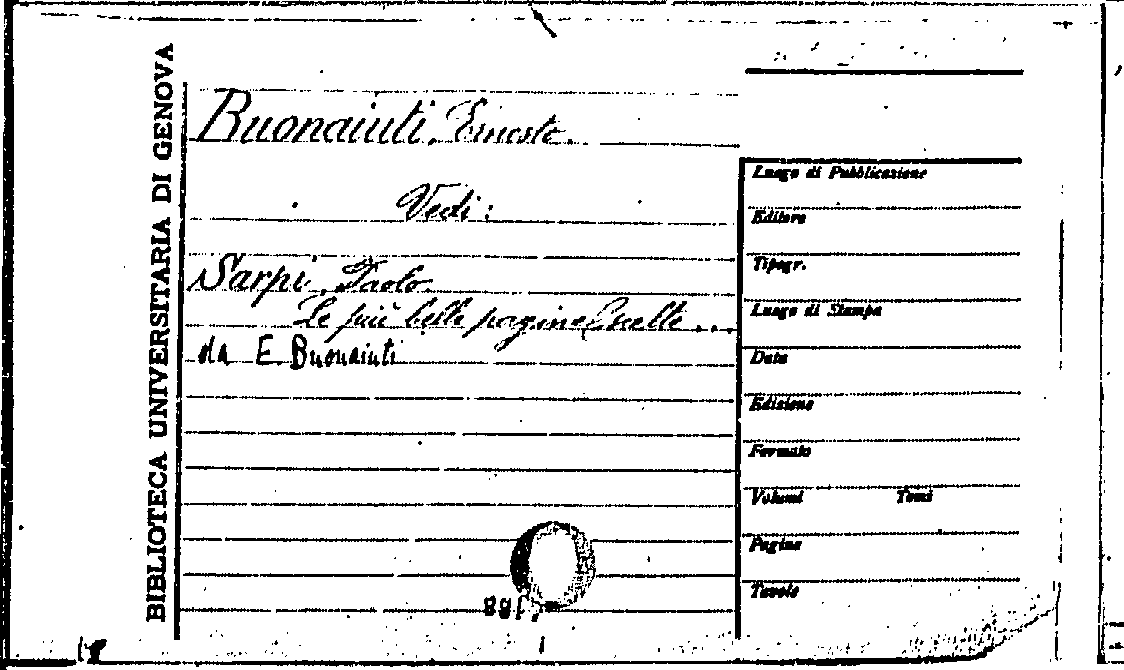 BIBLIOTECA UNIVERSITARIA DI GENOVA
Buonaiuti, Ernesto.
Vedi:
Sarpi, Paolo.
Le più belle pagine scelte ...
da E. Buonaiuti
Luogo di Pubblicazione
Editore
Tipogr.
Luogo di Stampa
Data
Edizione
Formato
Volumi Tomi
Pagine
Tavole